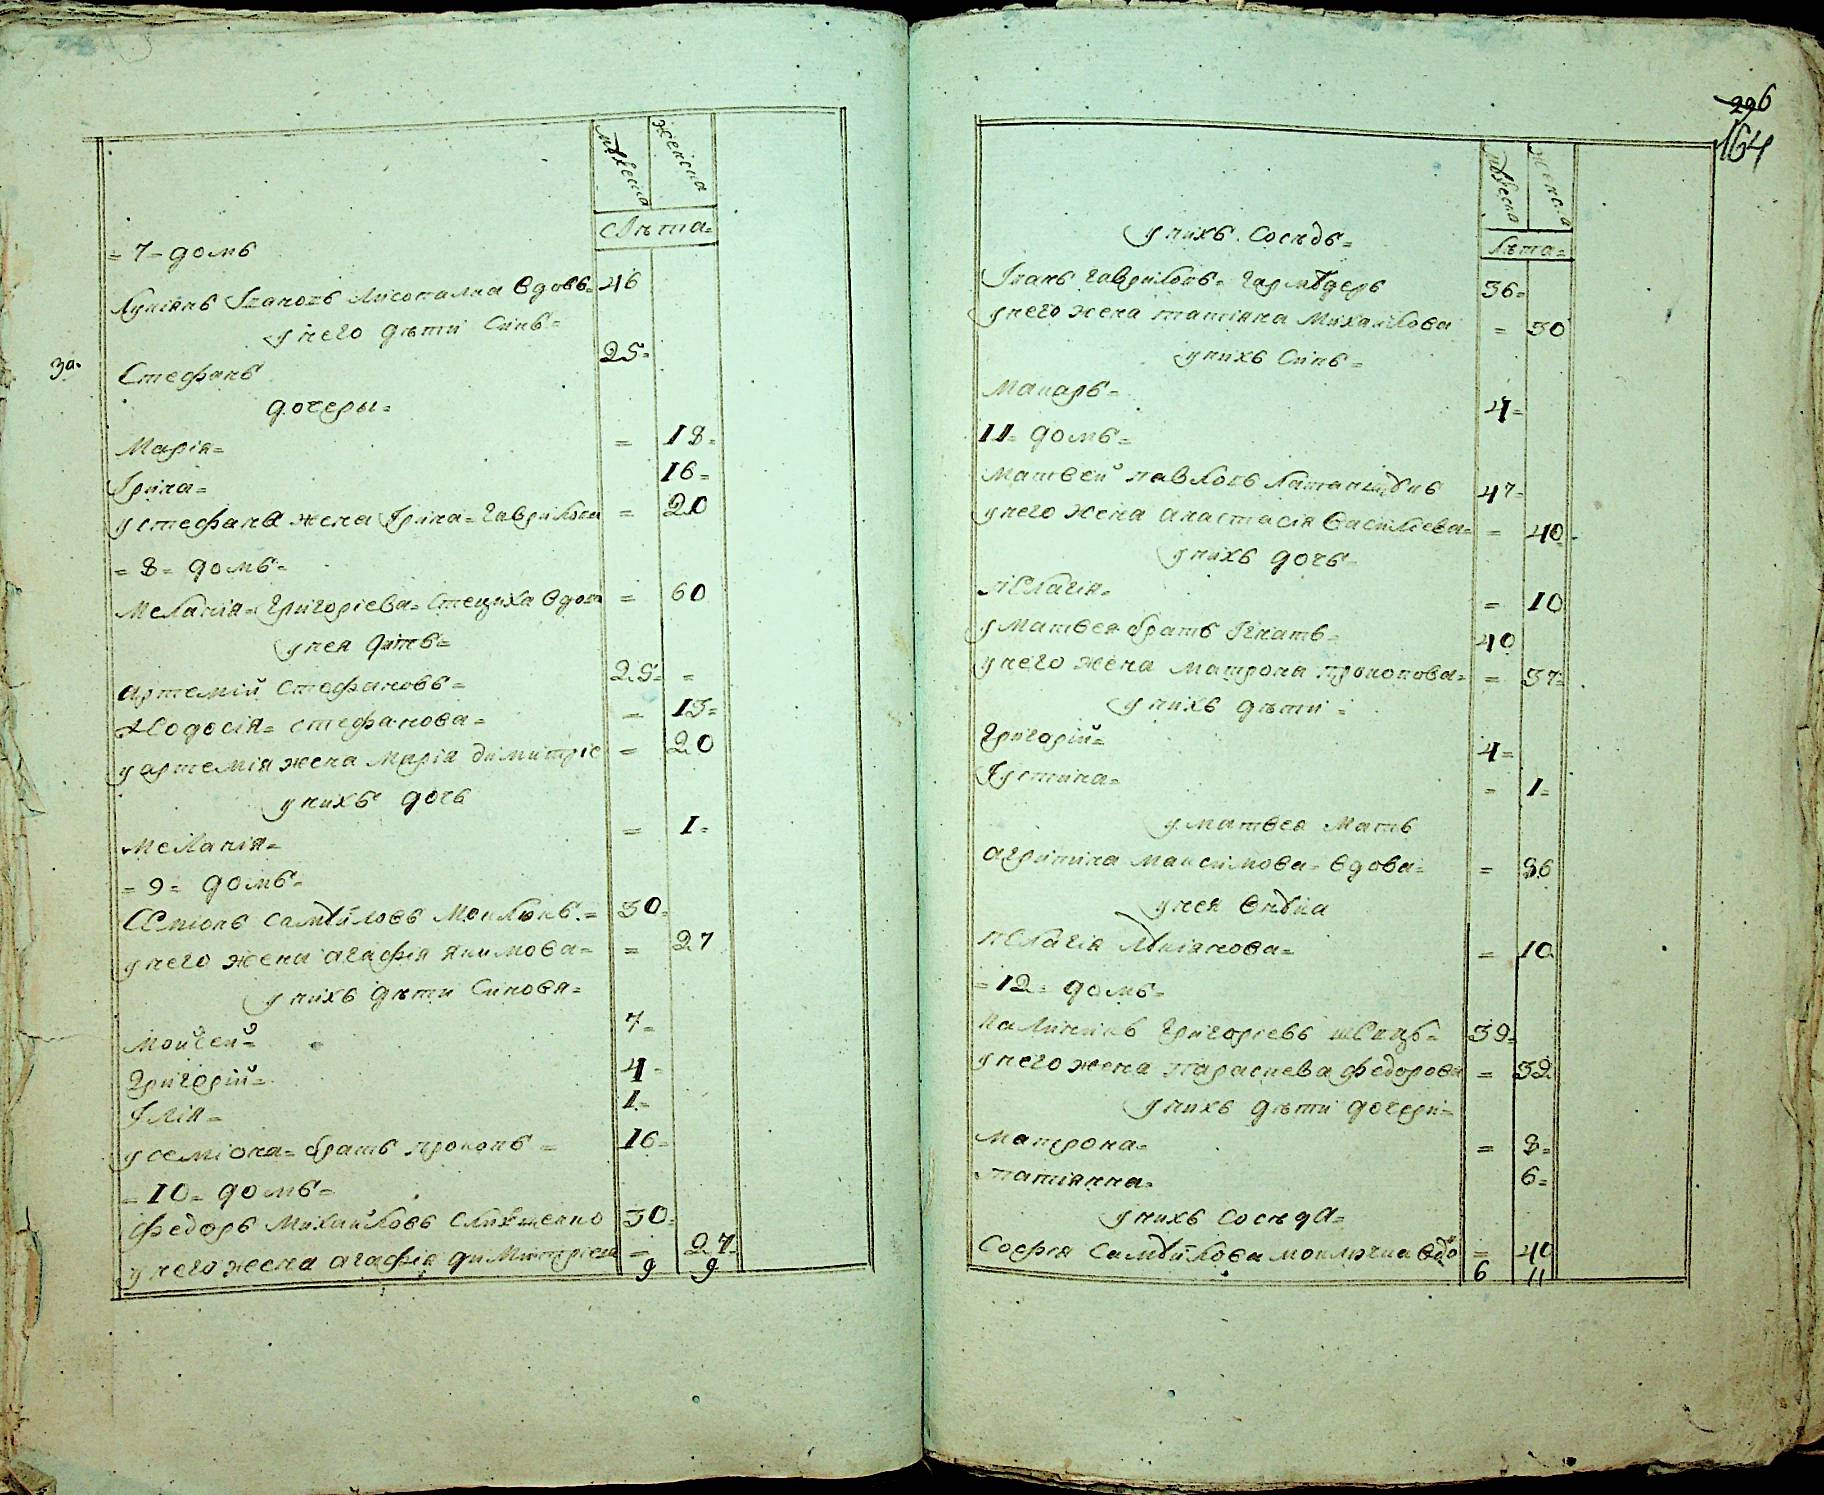 мужеска женска
лѣта=
= 7= домъ
Лукіянъ Ивановъ Лисопалка вдовъ= 46
у него дѣти синъ=
за. Стефанъ 25=
дочеры=
Марія= = 18=
Ірина= 16=
у стефана жена Ірина= Гаврилова = 20
= 8= домъ=
Меланія= Григоріева= Стециха вдова = 60
у нея дѣтъ=
Артемій стефановъ= 25= =
Ѳеодосія= стефанова= = 13=
у артемія жена Марія димитріе = 20
у нихъ дочь
Меланія= = 1=
= 9= домъ=
Семіонъ самуйловъ = 30=
у него жена агафія якимова= = 27
у нихъ дѣти синовя=
Мойсей= 7=
Григорій= 4=
Ілія= 1=
у семіона= братъ прокопъ = 16=
= 10= домъ=
Федоръ Михайловъ 30=
у него жена агафія димитріева = 27=
9 9
296
164
мужеска женска
лѣта=
у нихъ сосѣдъ=
Іванъ Гавриловъ= 36=
у него жена татіяна Михайлова = 30
у нихъ синъ=
Макаръ= 4=
11= домъ=
Матвей павловъ 47=
у него жена анастасія василіева= = 40=
у нихъ дочь
пелагія= = 10
у Матвея братъ Ігнатъ= 40
у него жена матрона прокопова= = 37=
у нихъ дѣти=
Григорій= 4=
Іустина= = 1=
у матвея мать
агрипина максимова= вдова= = 86
у нея внука
пелагія лукіянова= = 10
= 12= домъ=
Калиникъ Григоріевъ швецъ= 39=
у него жена параскева федорова = 32
у нихъ дѣти дочери=
матрона= = 8=
татіянна= 6=
у нихъ сосѣда=
Софія самуйлова вдо = 40
6 11